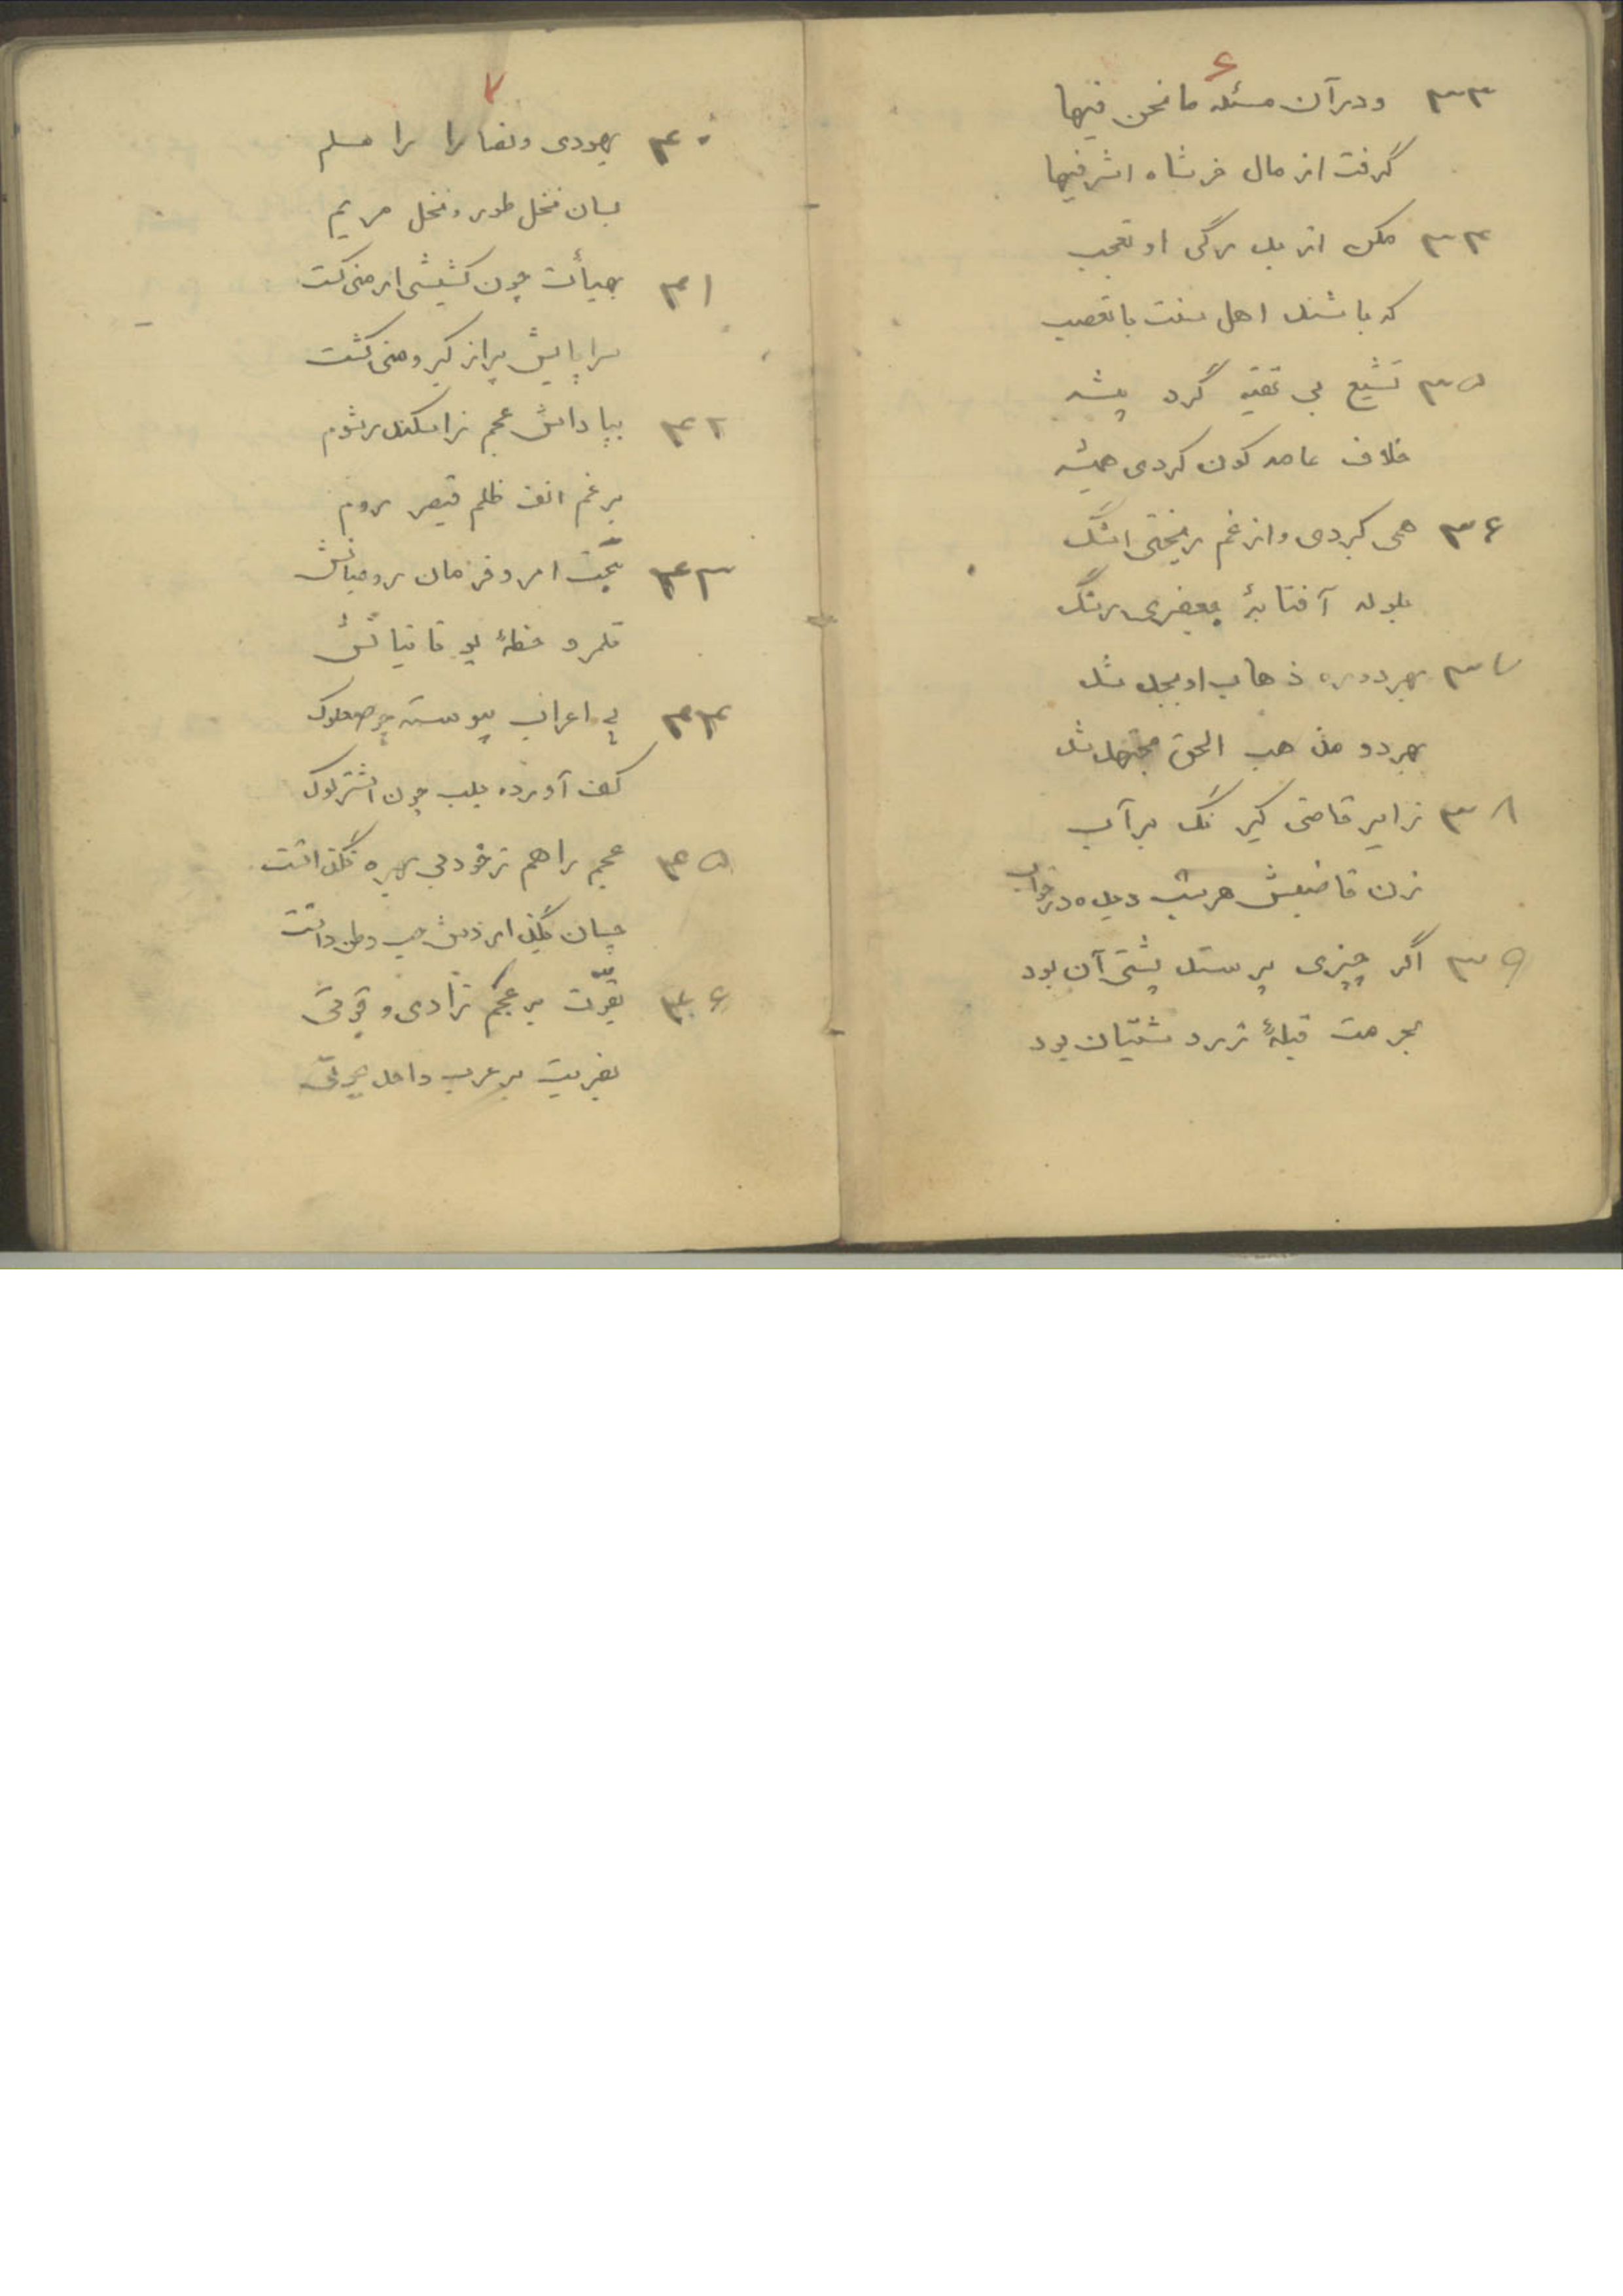 ۶
۳۳ ودر آن مسئله ما نحن فیها
گرفت از مال خر شاه اشرفیها
۳۴ مکن از بد رگی او تعجب
که باشند اهل سنت با تعصب
۳۵ تشیع بی تقیه کرد پیشه
خلاف عامه کون کردی همیشه
۳۶ همی کردی و از غم ریختی اشک
بلوله آفتابهٔ جعفری رنگ
۳۷ بهر دوره ذهاب او بجد شد
بهر دو مذهب الحق مجتهد شد
۳۸ ز ایر قاضی کیر نک بر آب
زن قاضیش هر شب دیده در خواب
۳۹ اگر چیزی پرستد پشتی آن بود
بحرمت قبلهٔ زردشتیان بود
۷
۴۰ یهودی و نصارا را مسلم
بسان نخل طور و نخل مریم
۴۱ بهیأت چون کشیشی ارمنی کت
سراپایش پر از کیر و منی کشت
۴۲ بپاداش عجم ز اسکندر شوم
برغم انف ظلم قیصر روم
۴۳ تحت امر و فرمان رومیانش
قلمرو خطهٔ یوقانیانش
۴۴ پی اعراب پیوسته چو صعلوک
کف آورده بلب چون اشتر لوک
۴۵ عجم را هم ز خود بی بهره نگذاشت
چسان بگذاردش حب وطن داشت
۴۶ بقوت بر عجم زادی و قومی
بضربت بر عرب داخل چو